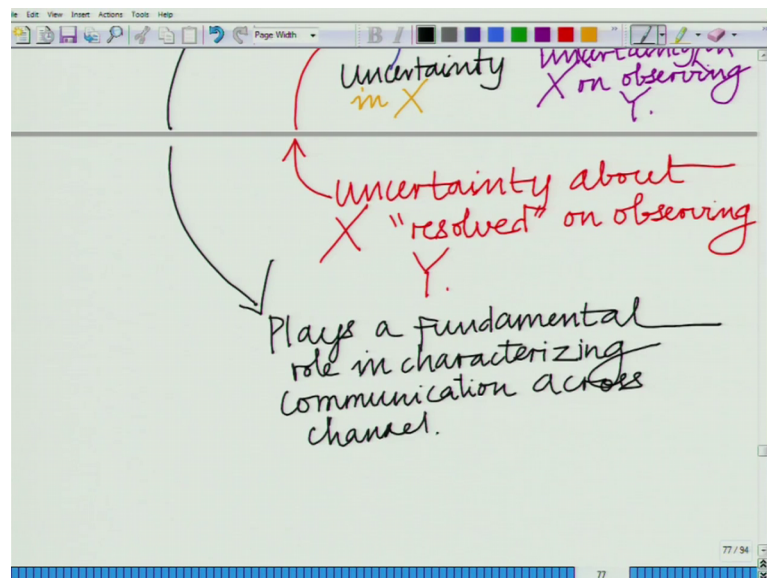 File Edit View Insert Actions Tools Help
Page Width
B I
Uncertainty
in X
Uncertainty in
X on observing
Y.
Uncertainty about
X "resolved" on observing
Y.
Plays a fundamental
role in characterizing
communication across
channel.
77 / 94
77